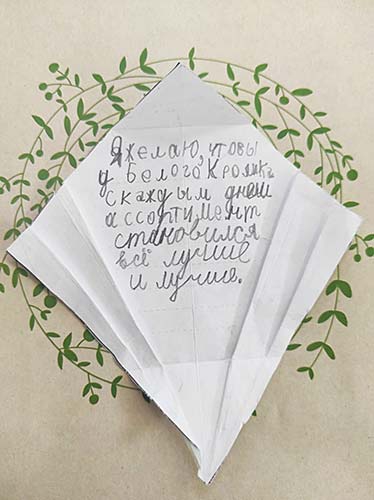 Я желаю, чтобы
у Белого Кролика
с каждым днём
ассортимент
становился
всё лучше
и лучше.